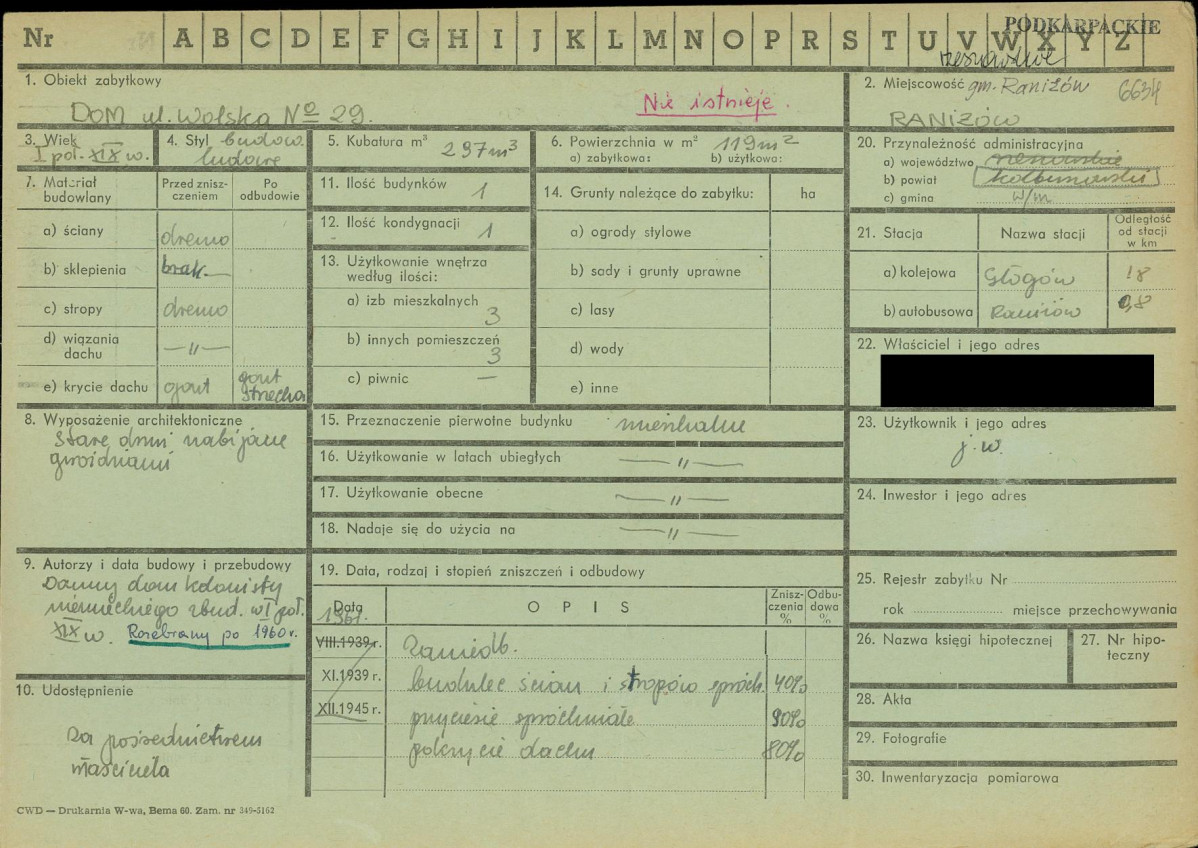 PODKARPACKIE
Nr A B C D E F G H I J K L M N O P R S T U V W X Y Z
rzeszowskie
1. Obiekt zabytkowy
DOM ul. Wolska No 29.
Nie istnieje.
2. Miejscowość gm. Raniżów
6634
RANIŻÓW
3. Wiek
I poł. XIX w.
4. Styl budow.
ludowe
5. Kubatura m³ 297 m³
6. Powierzchnia w m² 119 m²
a) zabytkowa: b) użytkowa:
7. Materiał budowlany
Przed zniszczeniem
Po odbudowie
a) ściany drewno
b) sklepienia brak
c) stropy drewno
d) wiązania dachu —„—
e) krycie dachu gont gont
strzecha
8. Wyposażenie architektoniczne
Stare drzwi nabijane
gwoździami
9. Autorzy i data budowy i przebudowy
Dawny dom kolonisty
niemieckiego zbud. w I poł.
XIX w. Rozebrany po 1960 r.
10. Udostępnienie
za pośrednictwem
właściciela
11. Ilość budynków 1
12. Ilość kondygnacji 1
13. Użytkowanie wnętrza
według ilości:
a) izb mieszkalnych 3
b) innych pomieszczeń 3
c) piwnic —
14. Grunty należące do zabytku: ha
a) ogrody stylowe
b) sady i grunty uprawne
c) lasy
d) wody
e) inne
15. Przeznaczenie pierwotne budynku mieszkalne
16. Użytkowanie w latach ubiegłych —„—
17. Użytkowanie obecne —„—
18. Nadaje się do użycia na —„—
19. Data, rodzaj i stopień zniszczeń i odbudowy
Data OPIS Zniszczenia % Odbudowa %
1961.
VIII.1939 r. Zaniedb.
XI.1939 r. budulec ścian i stropów spróch. 40%
XII.1945 r. przyciesie spróchniałe 90%
pokrycie dachu 80%
20. Przynależność administracyjna
a) województwo rzeszowskie
b) powiat kolbuszowski
c) gmina w/m
21. Stacja Nazwa stacji Odległość od stacji w km
a) kolejowa Głogów 18
b) autobusowa Raniżów 0,8
22. Właściciel i jego adres
23. Użytkownik i jego adres
j.w.
24. Inwestor i jego adres
25. Rejestr zabytku Nr
rok miejsce przechowywania
26. Nazwa księgi hipotecznej
27. Nr hipoteczny
28. Akta
29. Fotografie
30. Inwentaryzacja pomiarowa
CWD — Drukarnia W-wa, Bema 60. Zam. nr 349-5162